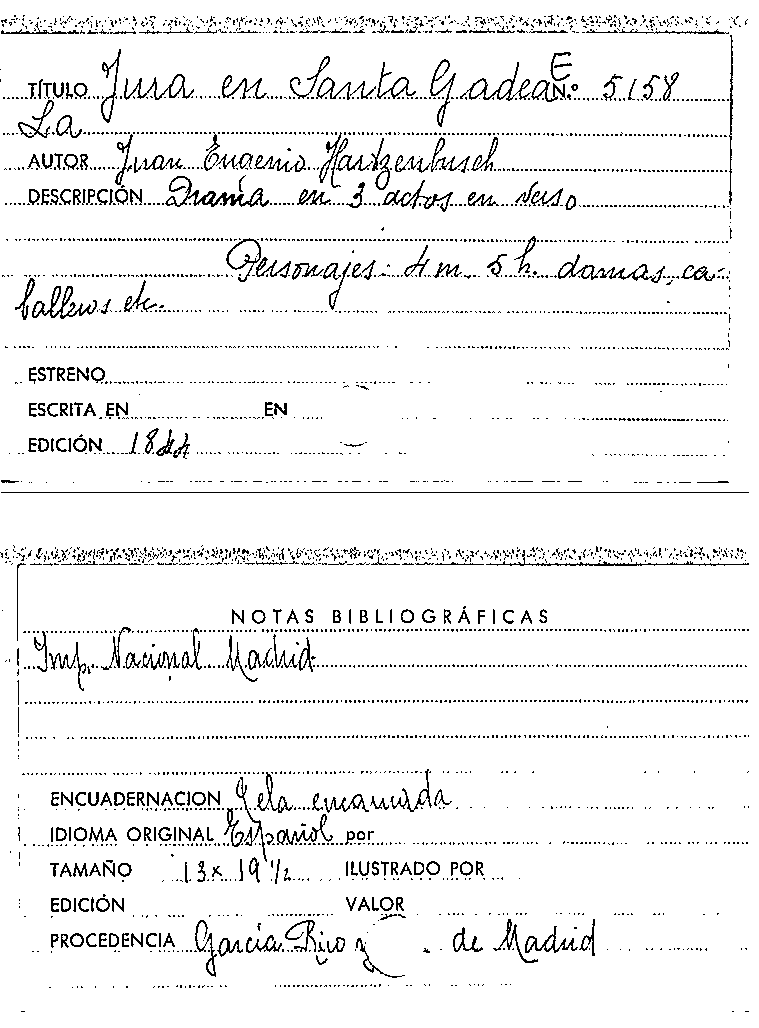 E
TÍTULO Jura en Santa Gadea N.º 5158
La
AUTOR Juan Eugenio Hartzenbusch
DESCRIPCIÓN Drama en 3 actos en verso
Personajes: 4 m. 5 h. damas, ca-
balleros etc.
ESTRENO
ESCRITA EN EN
EDICIÓN 1844
NOTAS BIBLIOGRÁFICAS
Imp. Nacional Madrid
ENCUADERNACION Tela encarnada
IDIOMA ORIGINAL Español por
TAMAÑO 13 x 19 1/2 ILUSTRADO POR
EDICIÓN VALOR
PROCEDENCIA García Rico y de Madrid